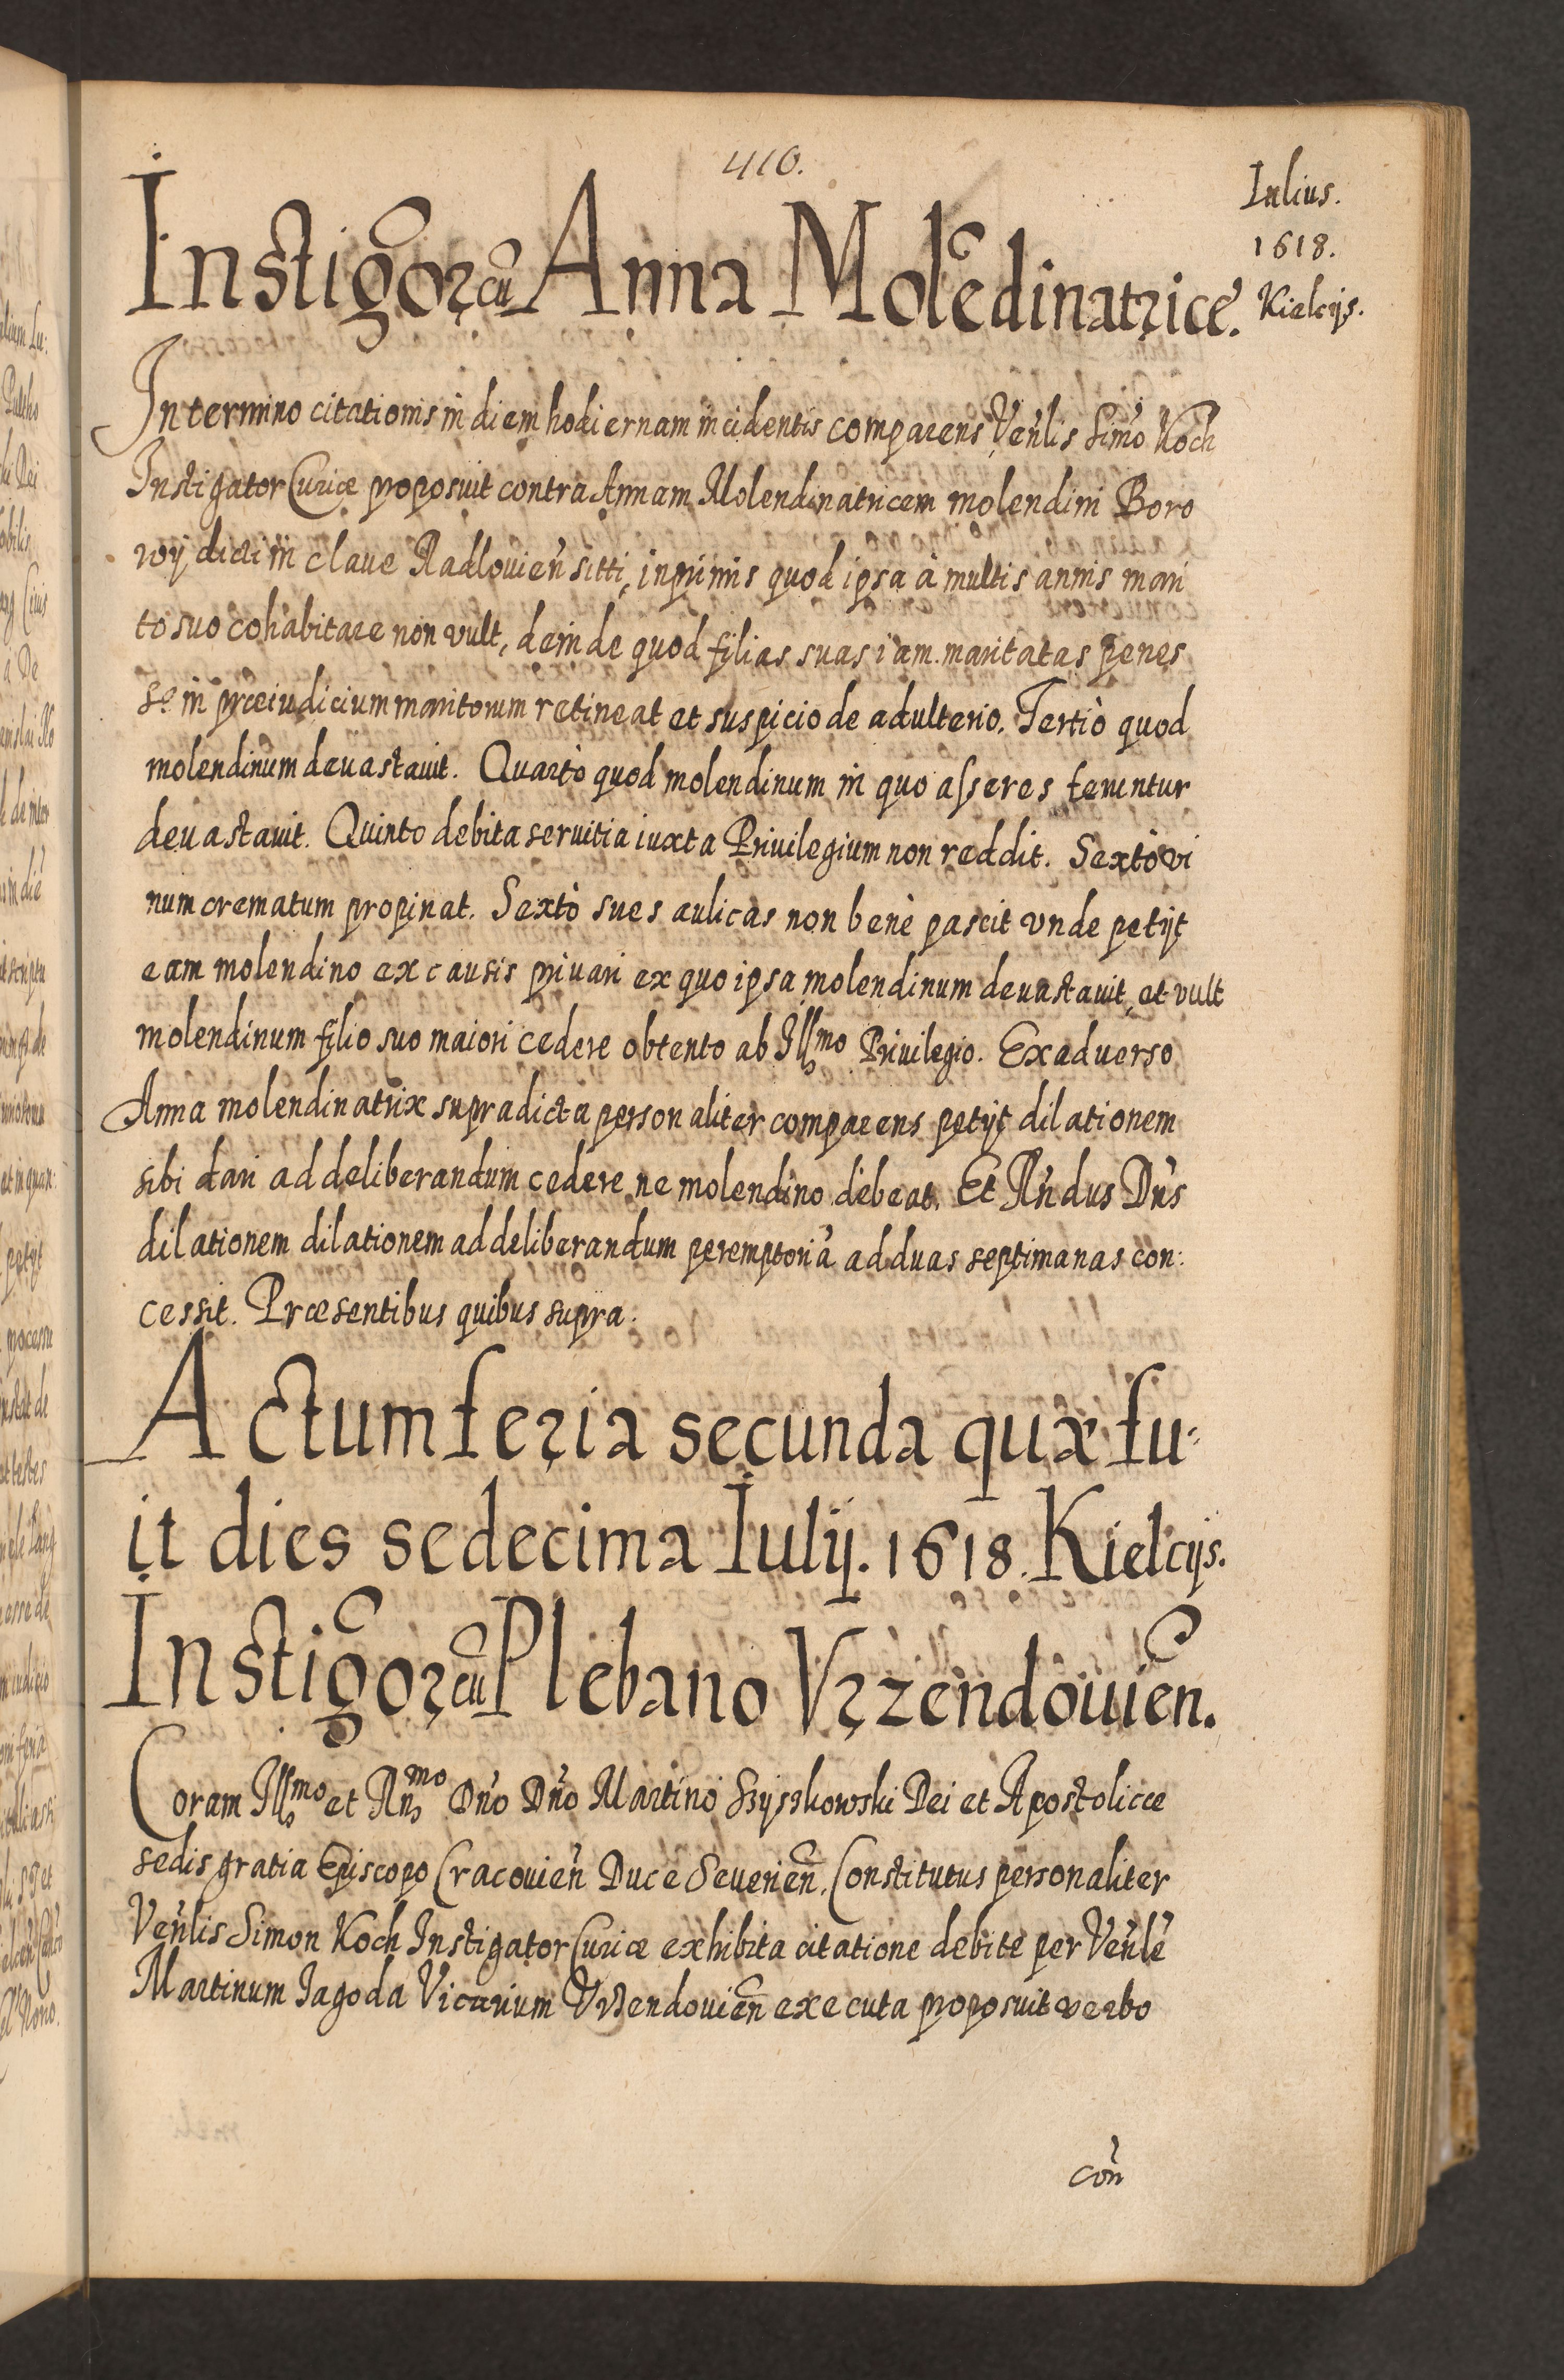 410.
Iulius.
1618.
Kielcijs.
Instig̃or cũ Anna Molẽdinatricẽ.
In termino citationis in diem hodiernam incidentis comparens Veñlis Simõ Koch
Instigator Curiæ proposuit contra Annam Molendinatricem molendini Boro
wÿ dicti in claue Radlouieñ sitti, inprimis quod ipsa à multis annis mari
to suo cohabitare non vult, deinde quod filias suas iam maritatas penes
se in præiudicium maritorum retineat et suspicio de adulterio. Tertiò quod
molendinum deuastauit. Quartò quod molendinum in quo asseres teruntur
deuastauit. Quinto debita seruitia iuxta Priuilegium non reddit. Sextò vi
num crematum propinat. Sextò sues aulicas non benè pascit vnde petijt
eam molendino ex causis priuari ex quo ipsa molendinum deuastauit, et vult
molendinum filio suo maiori cedere obtento ab Illmo Priuilegio. Ex aduerso
Anna molendinatrix supradicta personaliter comparens petijt dilationem
sibi dari ad deliberandum cedere ne molendino debeat. Et Rñdus Dñs
dilationem dilationem ad deliberandum peremptoriã ad duas septimanas con:
cessit. Præsentibus quibus supra.
Actum feria secunda quæ fu:
it dies sedecima Iulij. 1618. Kielcijs.
Instig̃or cũ Plebano Vrzendouieñ.
Coram Illmo et Rnmo Dño Dño Martino Szyszkowski Dei et Apostolicæ
sedis gratia Episcopo Cracouieñ Duce Seuerieñ. Constitutus personaliter
Veñlis Simon Koch Instigator Curiæ exhibita citatione debitè per Veñlẽ
Martinum Jagoda Vicarium Vrzendouieñ executa proposuit verbo
coñ